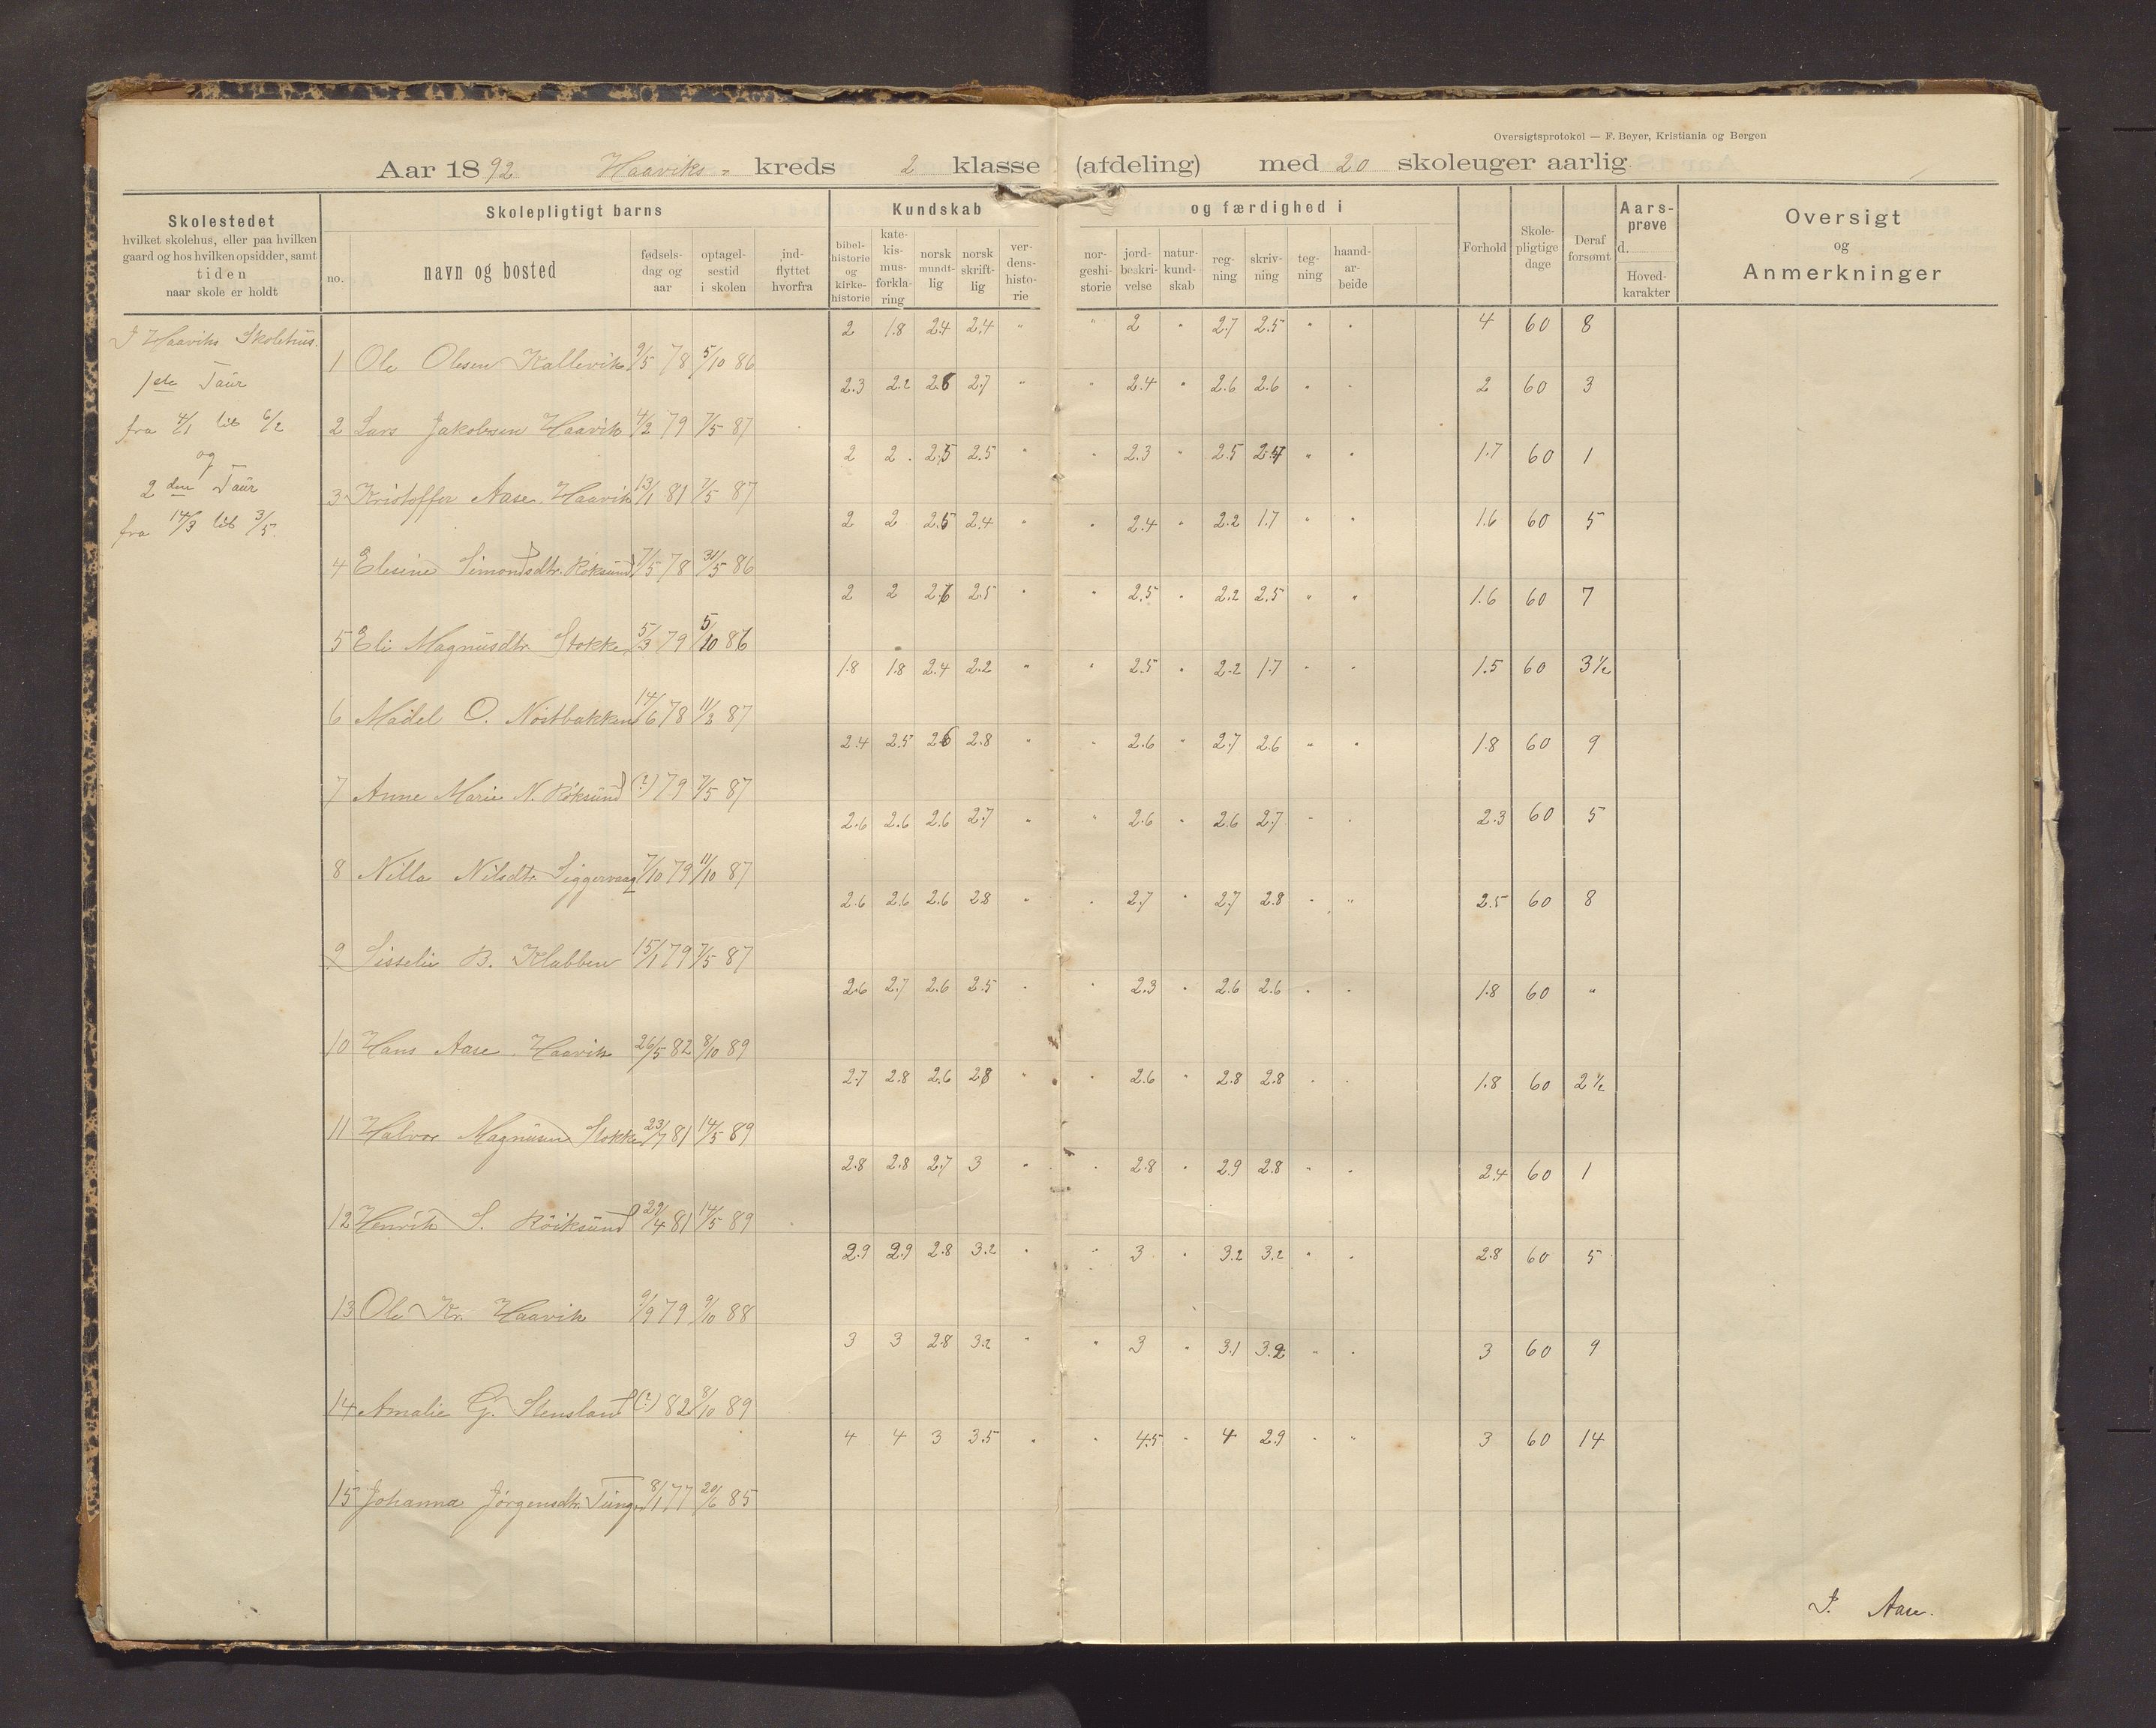 Oversigtsprotokol — F. Beyer, Kristiania og Bergen
Aar 1892 Haaviks kreds 2 klasse (afdeling) med 20 skoleuger aarlig
Skolestedet
hvilket skolehus, eller paa hvilken
gaard og hos hvilken opsidder, samt
tiden
naar skole er holdt
Skolepligtigt barns
no.
navn og bosted
fødsels-
dag og
aar
optagel-
sestid
i skolen
ind-
flyttet
hvorfra
Kundskab og færdighed i
bibel-
historie
og
kirke-
historie
kate-
kis-
mus-
forkla-
ring
norsk
mundt-
lig
norsk
skrift-
lig
ver-
dens-
histo-
rie
nor-
geshi-
storie
jord-
beskri-
velse
natur-
kund-
skab
reg-
ning
skriv-
ning
teg-
ning
haand-
ar-
beide
Forhold
Skole-
pligtige
dage
Deraf
forsømt
Aars-
prøve
d.
Hoved-
karakter
Oversigt
og
Anmerkninger
I Haaviks Skolehus.
1ste Taür
fra 4/1 til 6/2
og
2den Taür
fra 14/3 til 3/5.
1 Ole Olesen Kallevik 9/5 78 5/10 86 2 1.8 2.4 2.4 " " 2 " 2.7 2.5 " " 4 60 8
2 Lars Jakobsen Haavik 4/2 79 7/5 87 2.3 2.2 2.6 2.7 " " 2.4 " 2.6 2.6 " " 2 60 3
3 Kristoffer Aase Haavik 13/1 81 7/5 87 2 2 2.5 2.5 " " 2.3 " 2.5 2.4 " " 1.7 60 1
4 Elesine Simondsdtr. Røksund 7/5 78 31/5 86 2 2 2.5 2.4 " " 2.4 " 2.2 1.7 " " 1.6 60 5
5 Eli Magnüsdtr Stokke 5/3 79 5/10 86 2 2 2.6 2.5 " " 2.5 " 2.2 2.5 " " 1.6 60 7
6 Madel O. Nøstbakken 14/6 78 11/3 87 1.8 1.8 2.4 2.2 " " 2.5 " 2.2 1.7 " " 1.5 60 3½
7 Anne Marie N. Røksünd (?) 79 7/5 87 2.4 2.5 2.6 2.8 " " 2.6 " 2.7 2.6 " " 1.8 60 9
8 Nilla Nilsdtr. Siggervaag 7/10 79 11/10 87 2.6 2.6 2.6 2.7 " " 2.6 " 2.6 2.7 " " 2.3 60 5
9 Sisselie B. Klubben 15/1 79 7/5 87 2.6 2.6 2.6 2.8 " " 2.7 " 2.7 2.8 " " 2.5 60 8
10 Hans Aase Haavik 26/5 82 8/10 89 2.6 2.7 2.6 2.5 " " 2.3 " 2.6 2.6 " " 1.8 60 "
11 Halvor Magnüsen Stokke 23/7 81 14/5 89 2.7 2.8 2.6 2.8 " " 2.6 " 2.8 2.8 " " 1.8 60 2½
12 Henrik S. Röiksünd 29/4 81 14/5 89 2.8 2.8 2.7 3 " " 2.8 " 2.9 2.8 " " 2.4 60 1
13 Ole Kr. Haavik 9/9 79 9/10 88 2.9 2.9 2.8 3.2 " " 3 " 3.2 3.2 " " 2.8 60 5
14 Amalie G. Stensland (?) 82 8/10 89 3 3 2.8 3.2 " " 3 " 3.1 3.2 " " 3 60 9
15 Johanna Jørgensdtr. Tünge 8/1 77 20/6 85 4 4 3 3.5 " " 4.5 " 4 2.9 " " 3 60 14
I. Aase.